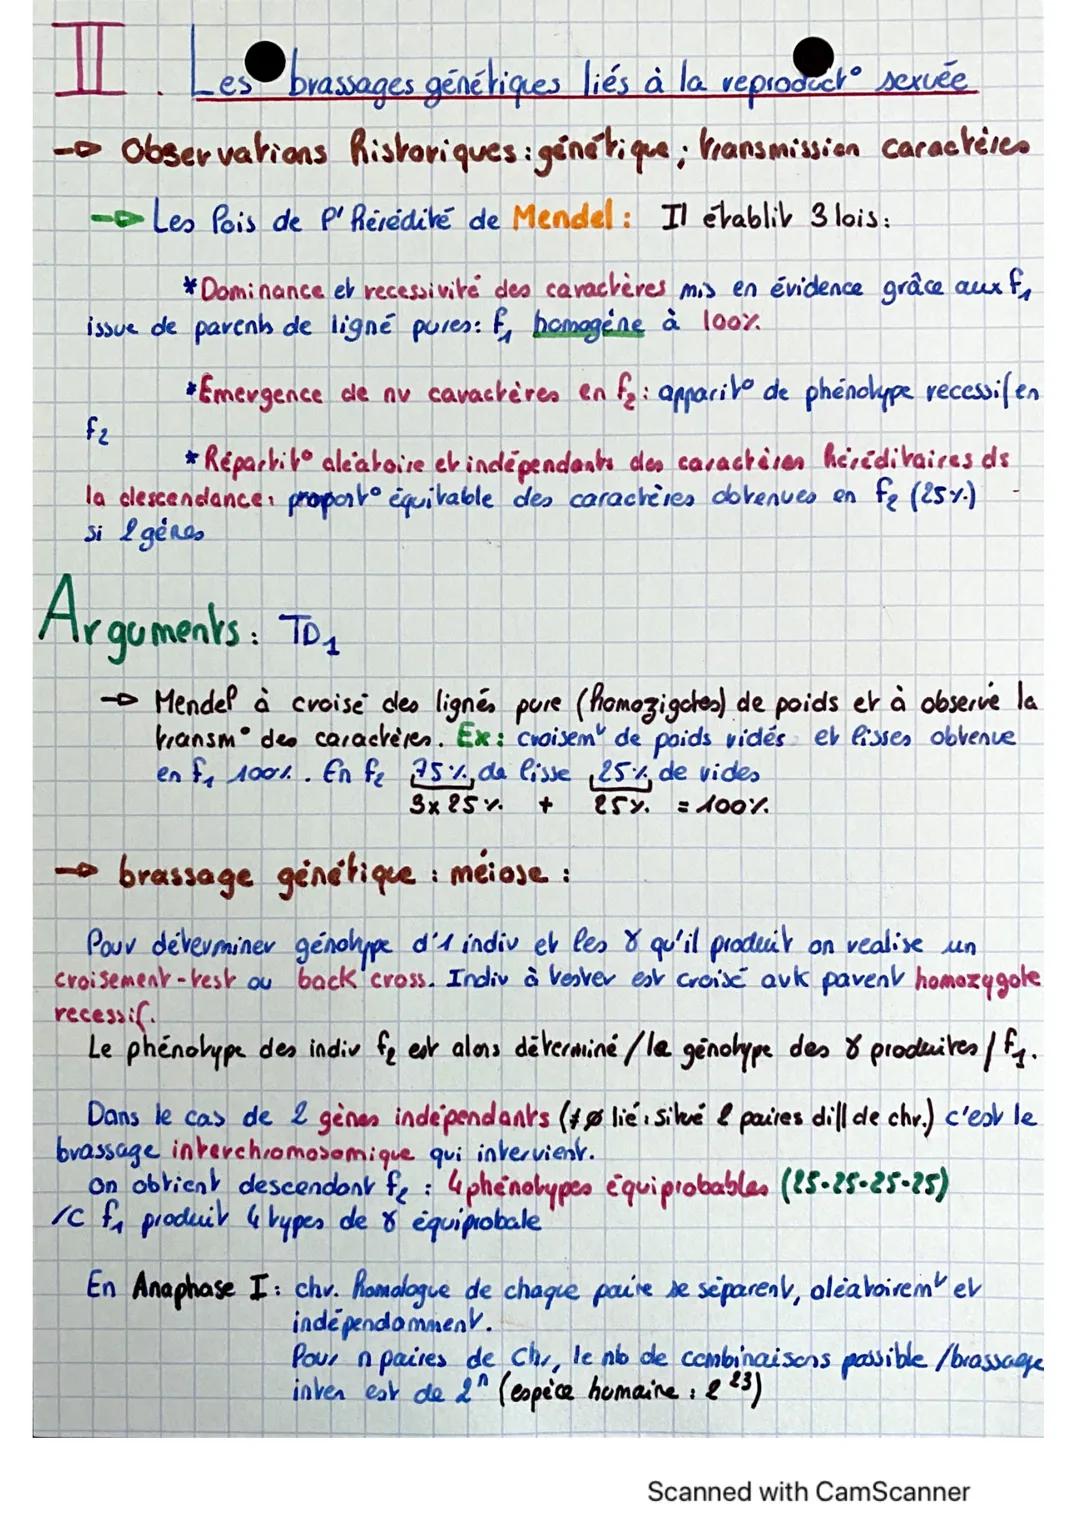 II. Les brassages génétiques liés à la reproduct° sexuée
→ Observations historiques : génétique ; transmission caractères
→ Les lois de l'hérédité de Mendel : Il établit 3 lois :
* Dominance et recessivité des caractères mis en évidence grâce aux f1
issue de parents de ligné pures : f1 homogéne à 100%
* Emergence de nv caractères en f2 : apparit° de phénotype recessif en
f2
* Répartit° aléatoire et indépendants des caractères héréditaires ds
la descendance : proport° équitable des caractères obtenues en f2 (25%)
si 2 gènes
Arguments : TD1
→ Mendel à croisé des lignés pure (homozigotes) de poids et à observé la
transm° des caractères. Ex : croisemt de poids ridés et lisses obtenue
en f1 100%. En f2 75% de lisse, 25% de rides
3x25% + 25% = 100%
→ brassage génétique : méiose :
Pour déterminer génotype d'1 indiv et les γ qu'il produit on realise un
croisement-test ou back cross. Indiv à tester est croisé avk parent homozygote
recessif.
Le phénotype des indiv f2 est alors déterminé / le génotype des γ produites / f1.
Dans le cas de 2 gènes indépendants (≠ ∅ lié : situé 2 paires diff de chr.) c'est le
brassage interchromosomique qui intervient.
On obtient descendant f2 : 4 phénotypes équiprobables (25-25-25-25)
/C f1 produit 4 types de γ équiprobale
En Anaphase I : chr. homologue de chaque paire se séparent, aléatoiremt et
indépendamment.
Pour n paires de chr, le nb de combinaisons possible /brassage
inter est de 2^n (espèce humaine : 2^23)
Scanned with CamScanner